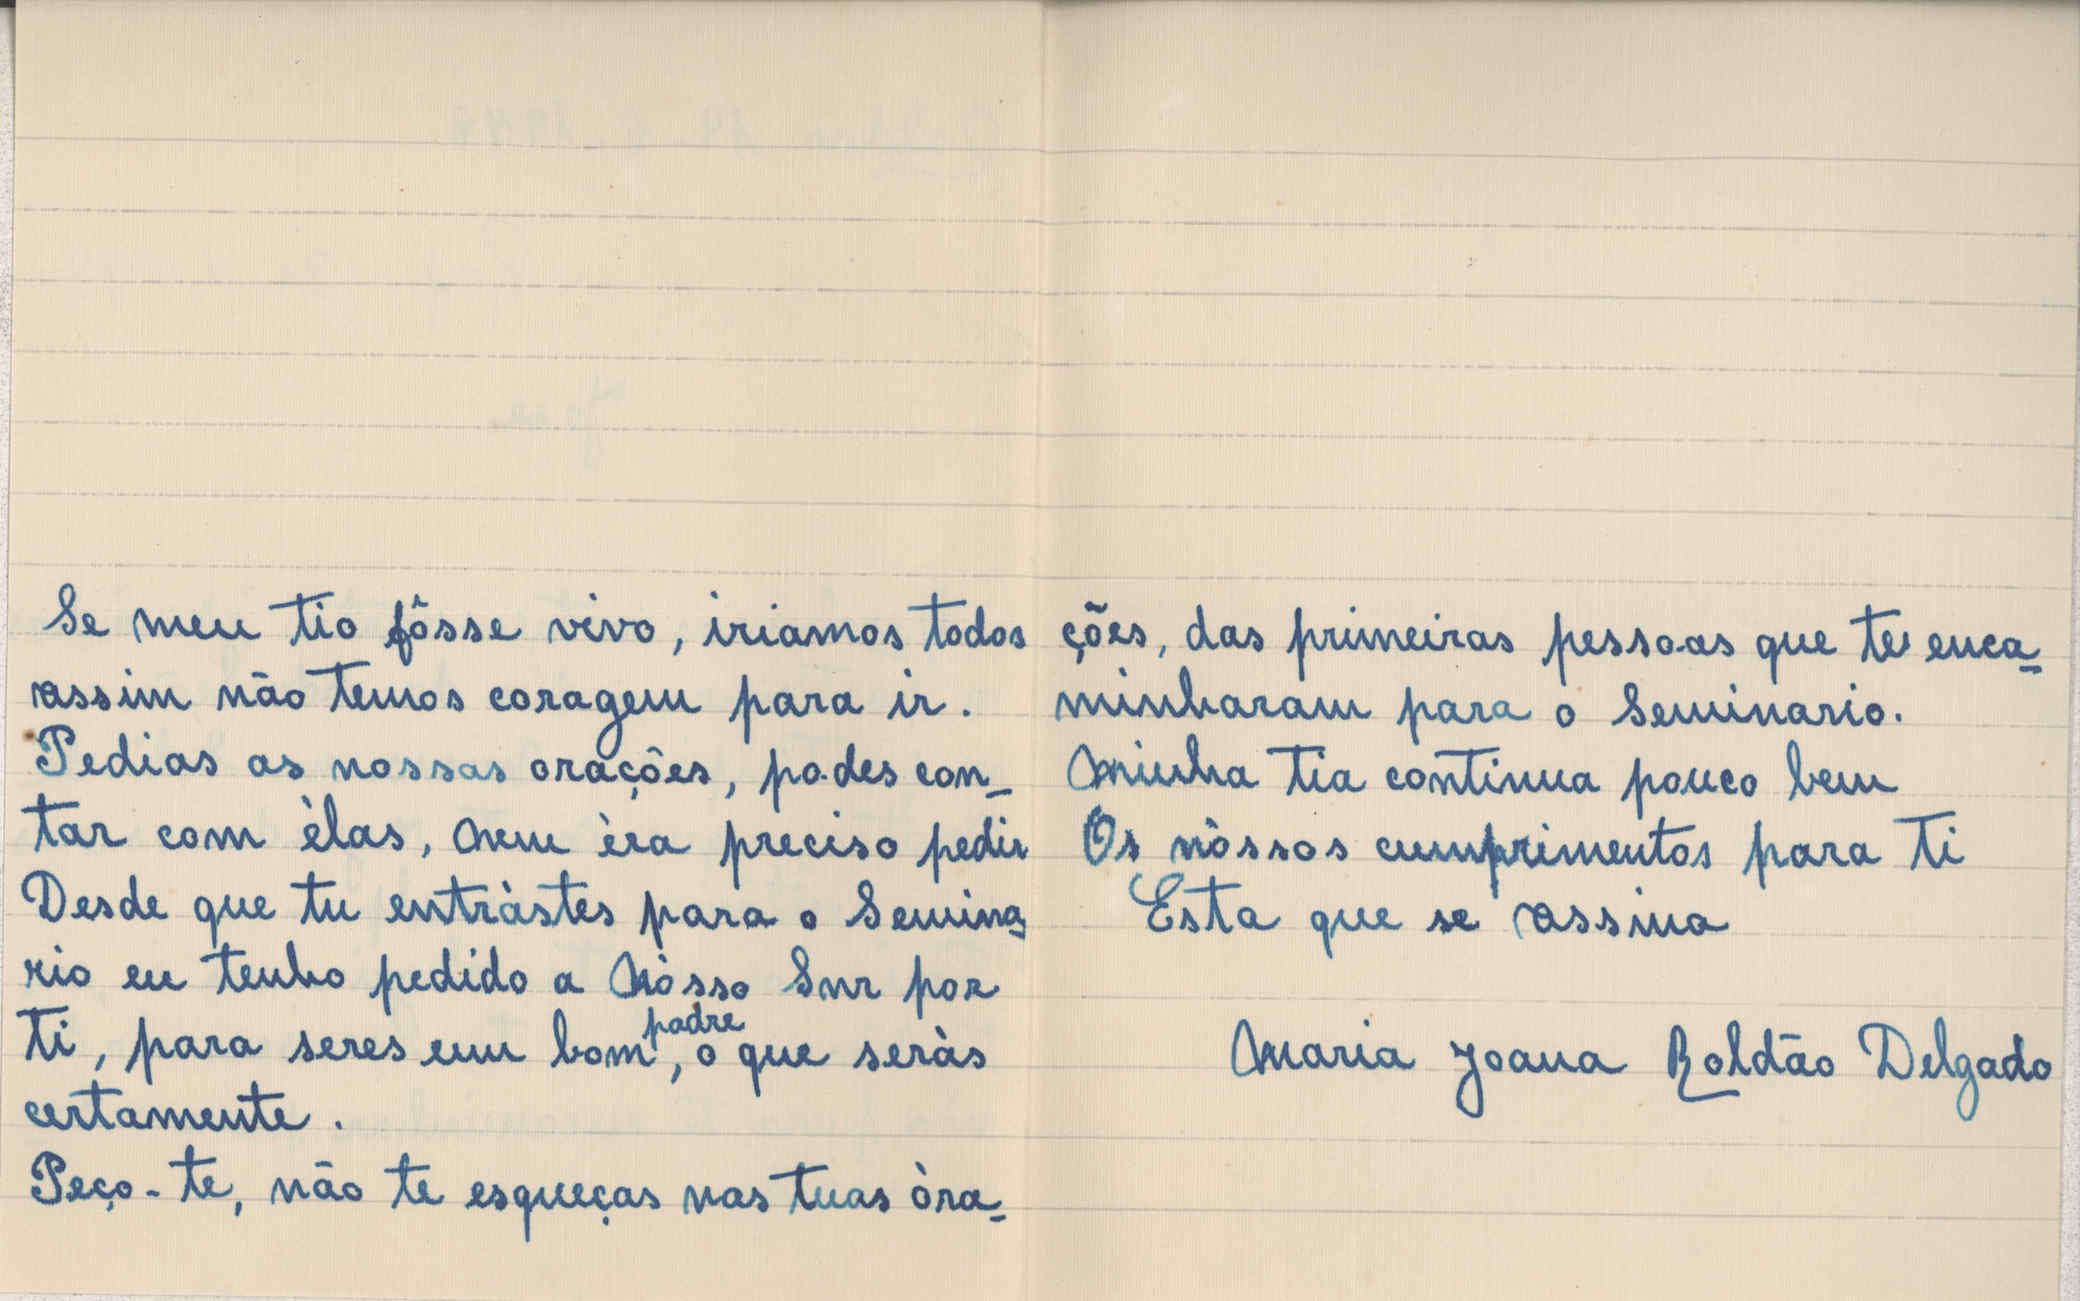 Se meu tio fôsse vivo, iriamos todos
assim não temos coragem para ir.
Pedias as nossas orações, podes con_
tar com èlas, nem èra preciso pedir
Desde que tu entràstes para o Semina_
rio eu tenho pedido a Nòsso Snr por
ti, para seres um bom padre, o que seràs
certamente.
Peço-te, não te esqueças nas tuas òra_
ções, das primeiras pessoas que te enca_
minharam para o Seminario.
Minha tia continua pouco bem
Os nòssos cumprimentos para ti
Esta que se assina
Maria Joana Roldão Delgado